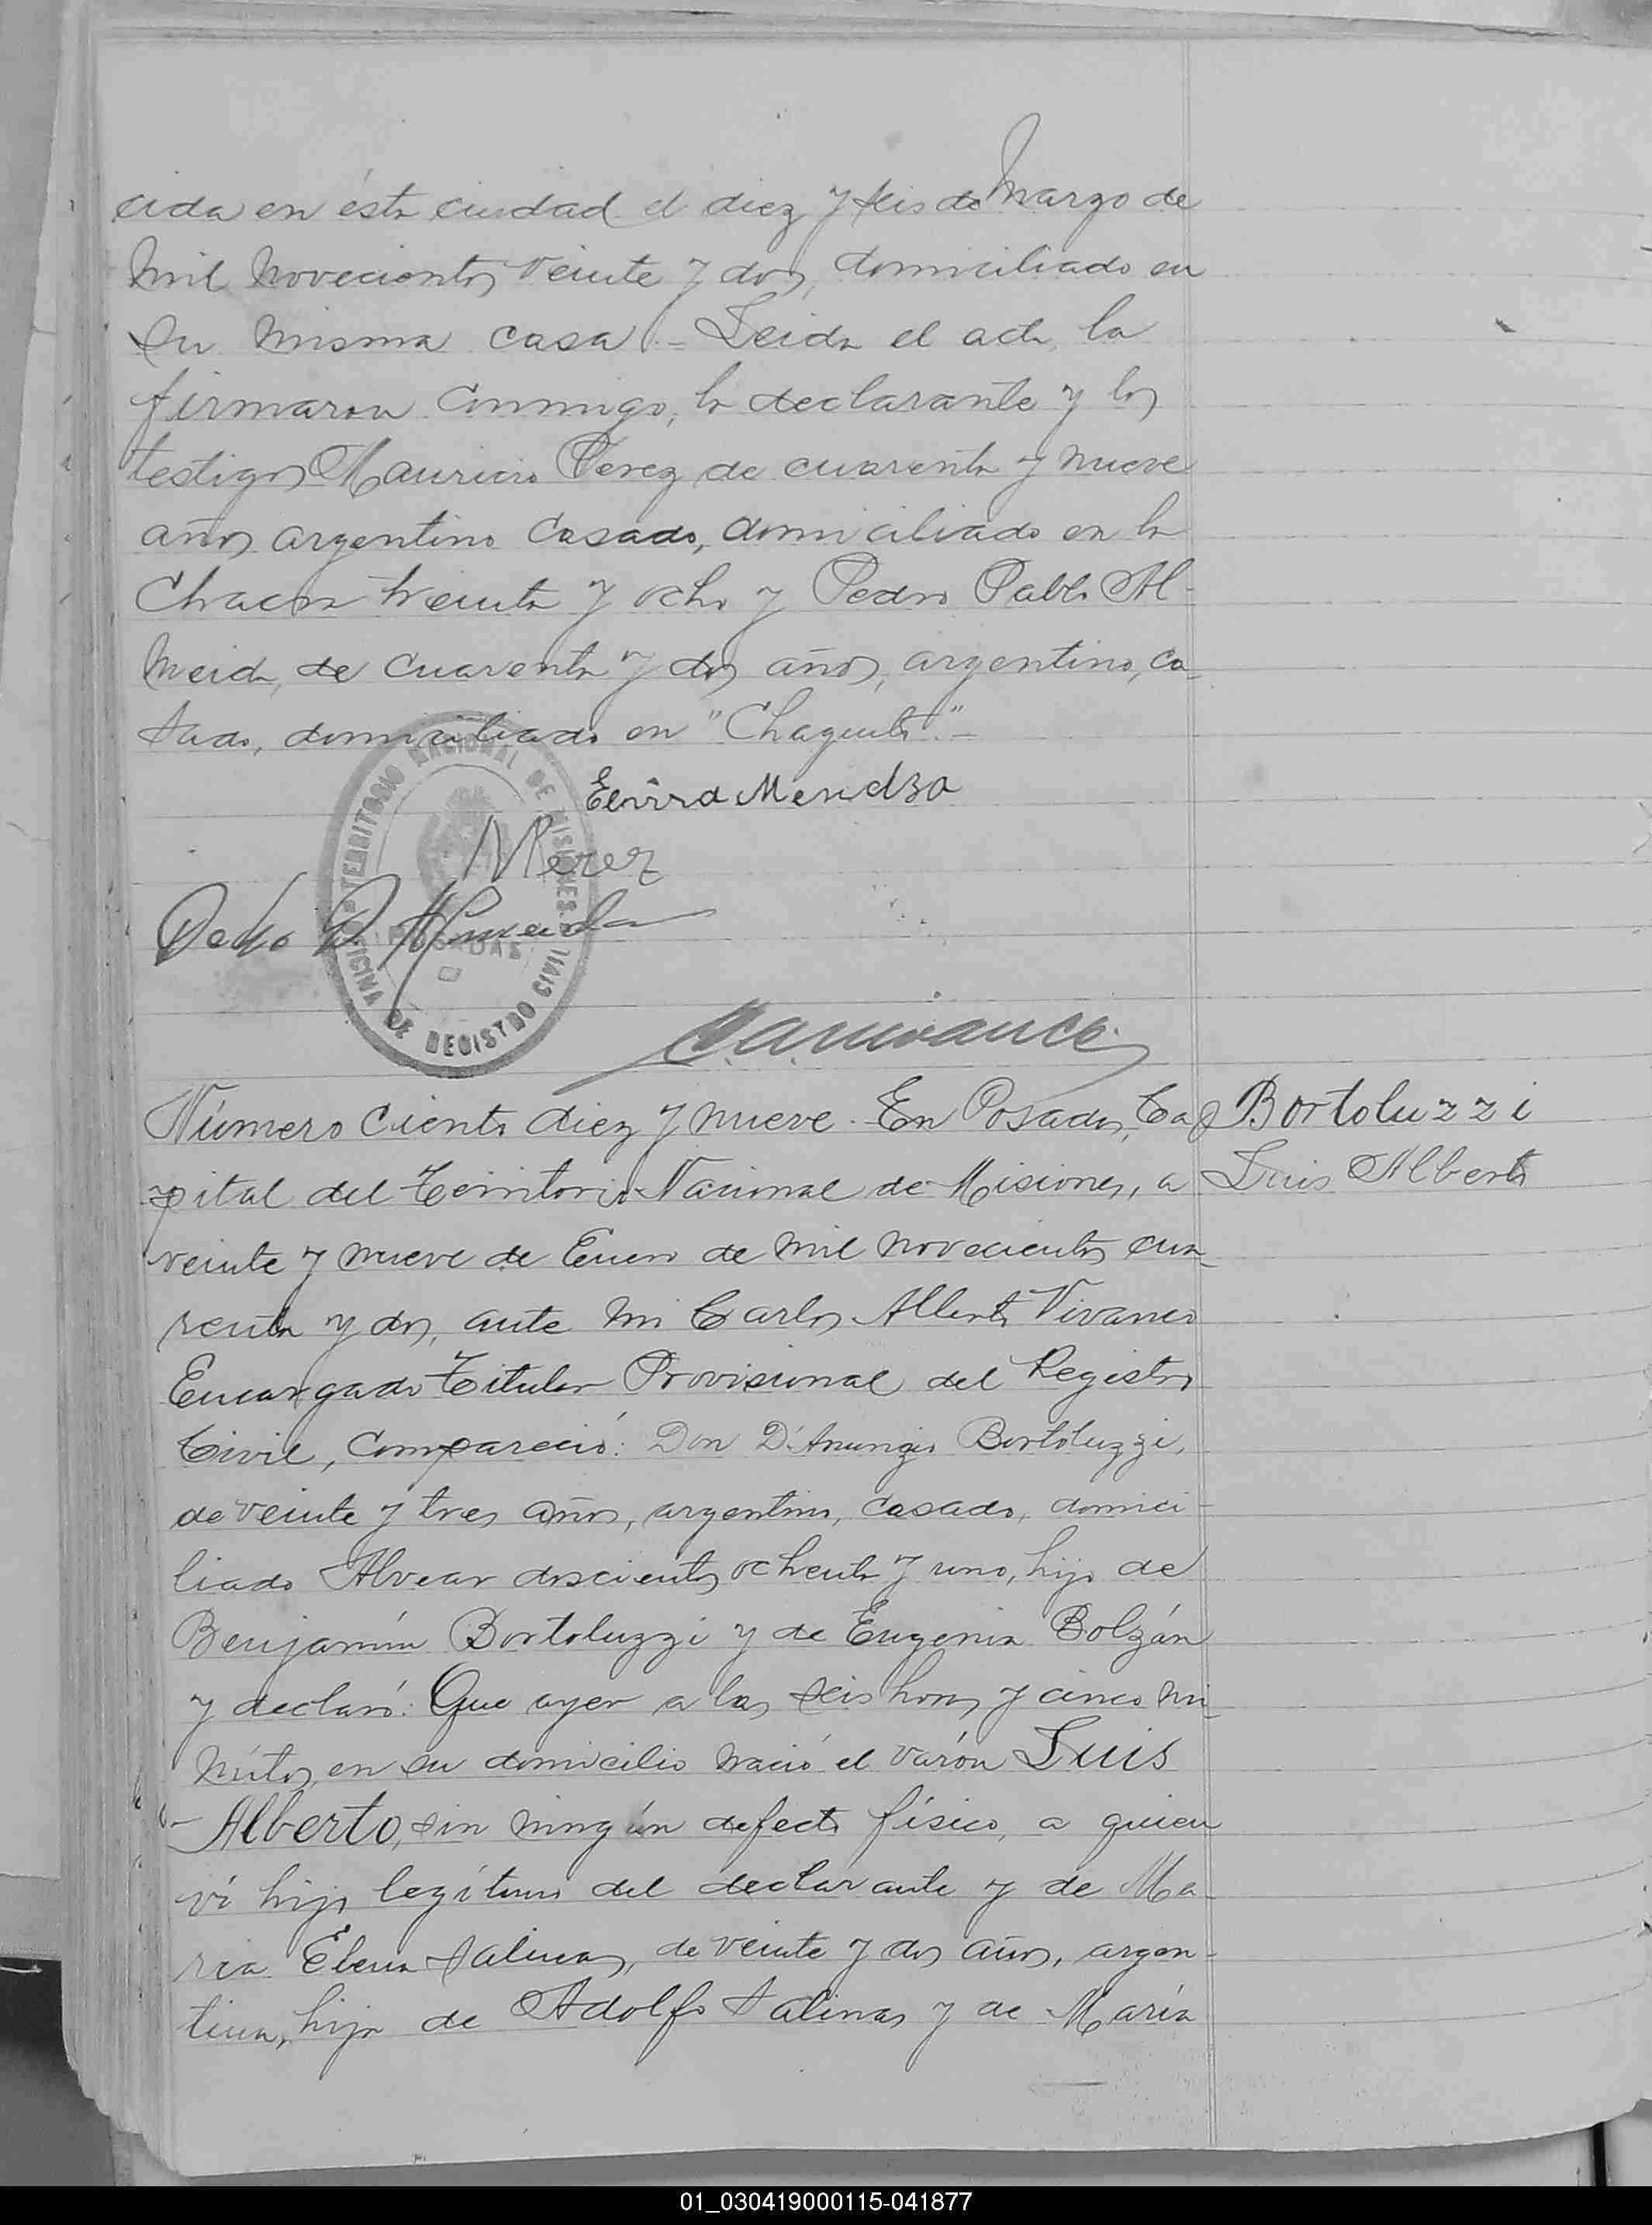 cida en ésta ciudad el diez y seis de Marzo de
mil novecientos veinte y dos, domiciliado en
su misma casa.- Leida el acta, la
firmaron conmigo, la declarante y los
testigos Mauricio Perez de cuarenta y nueve
años argentino casado, domiciliado en la
Chacra treinta y ocho y Pedro Pablo Al-
meida, de cuarenta y dos años, argentino, ca-
sado, domiciliado en "Chaquito".-
Elvira Mendoza
MPerez
Pedro P Almeida
TERRITORIO NACIONAL DE MISIONES
POSADAS
OFICINA DE REGISTRO CIVIL
CAVivanco
Número ciento diez y nueve. En Posadas, Ca
pital del Territorio Nacional de Misiones, a
veinte y nueve de Enero de mil novecientos cua-
renta y dos, ante mi Carlos Alberto Vivanco
Encargado Titular Provisional del Registro
Civil, compareció: Don D'Anunzio Bortoluzzi,
de veinte y tres años, argentino, casado, domici-
liado Alvear doscientos ochenta y uno, hijo de
Benjamín Bortoluzzi y de Eugenia Bolzán
y declaró: Que ayer a las seis horas y cinco mi-
nutos, en su domicilio nació el varón Luis
Alberto, sin ningún defecto físico, a quien
ví hijo legítimo del declarante y de Ma-
ria Elena Salinas, de veinte y dos años, argen-
tina, hija de Adolfo Salinas y de María
Bortoluzzi
Luis Alberto
01_030419000115-041877